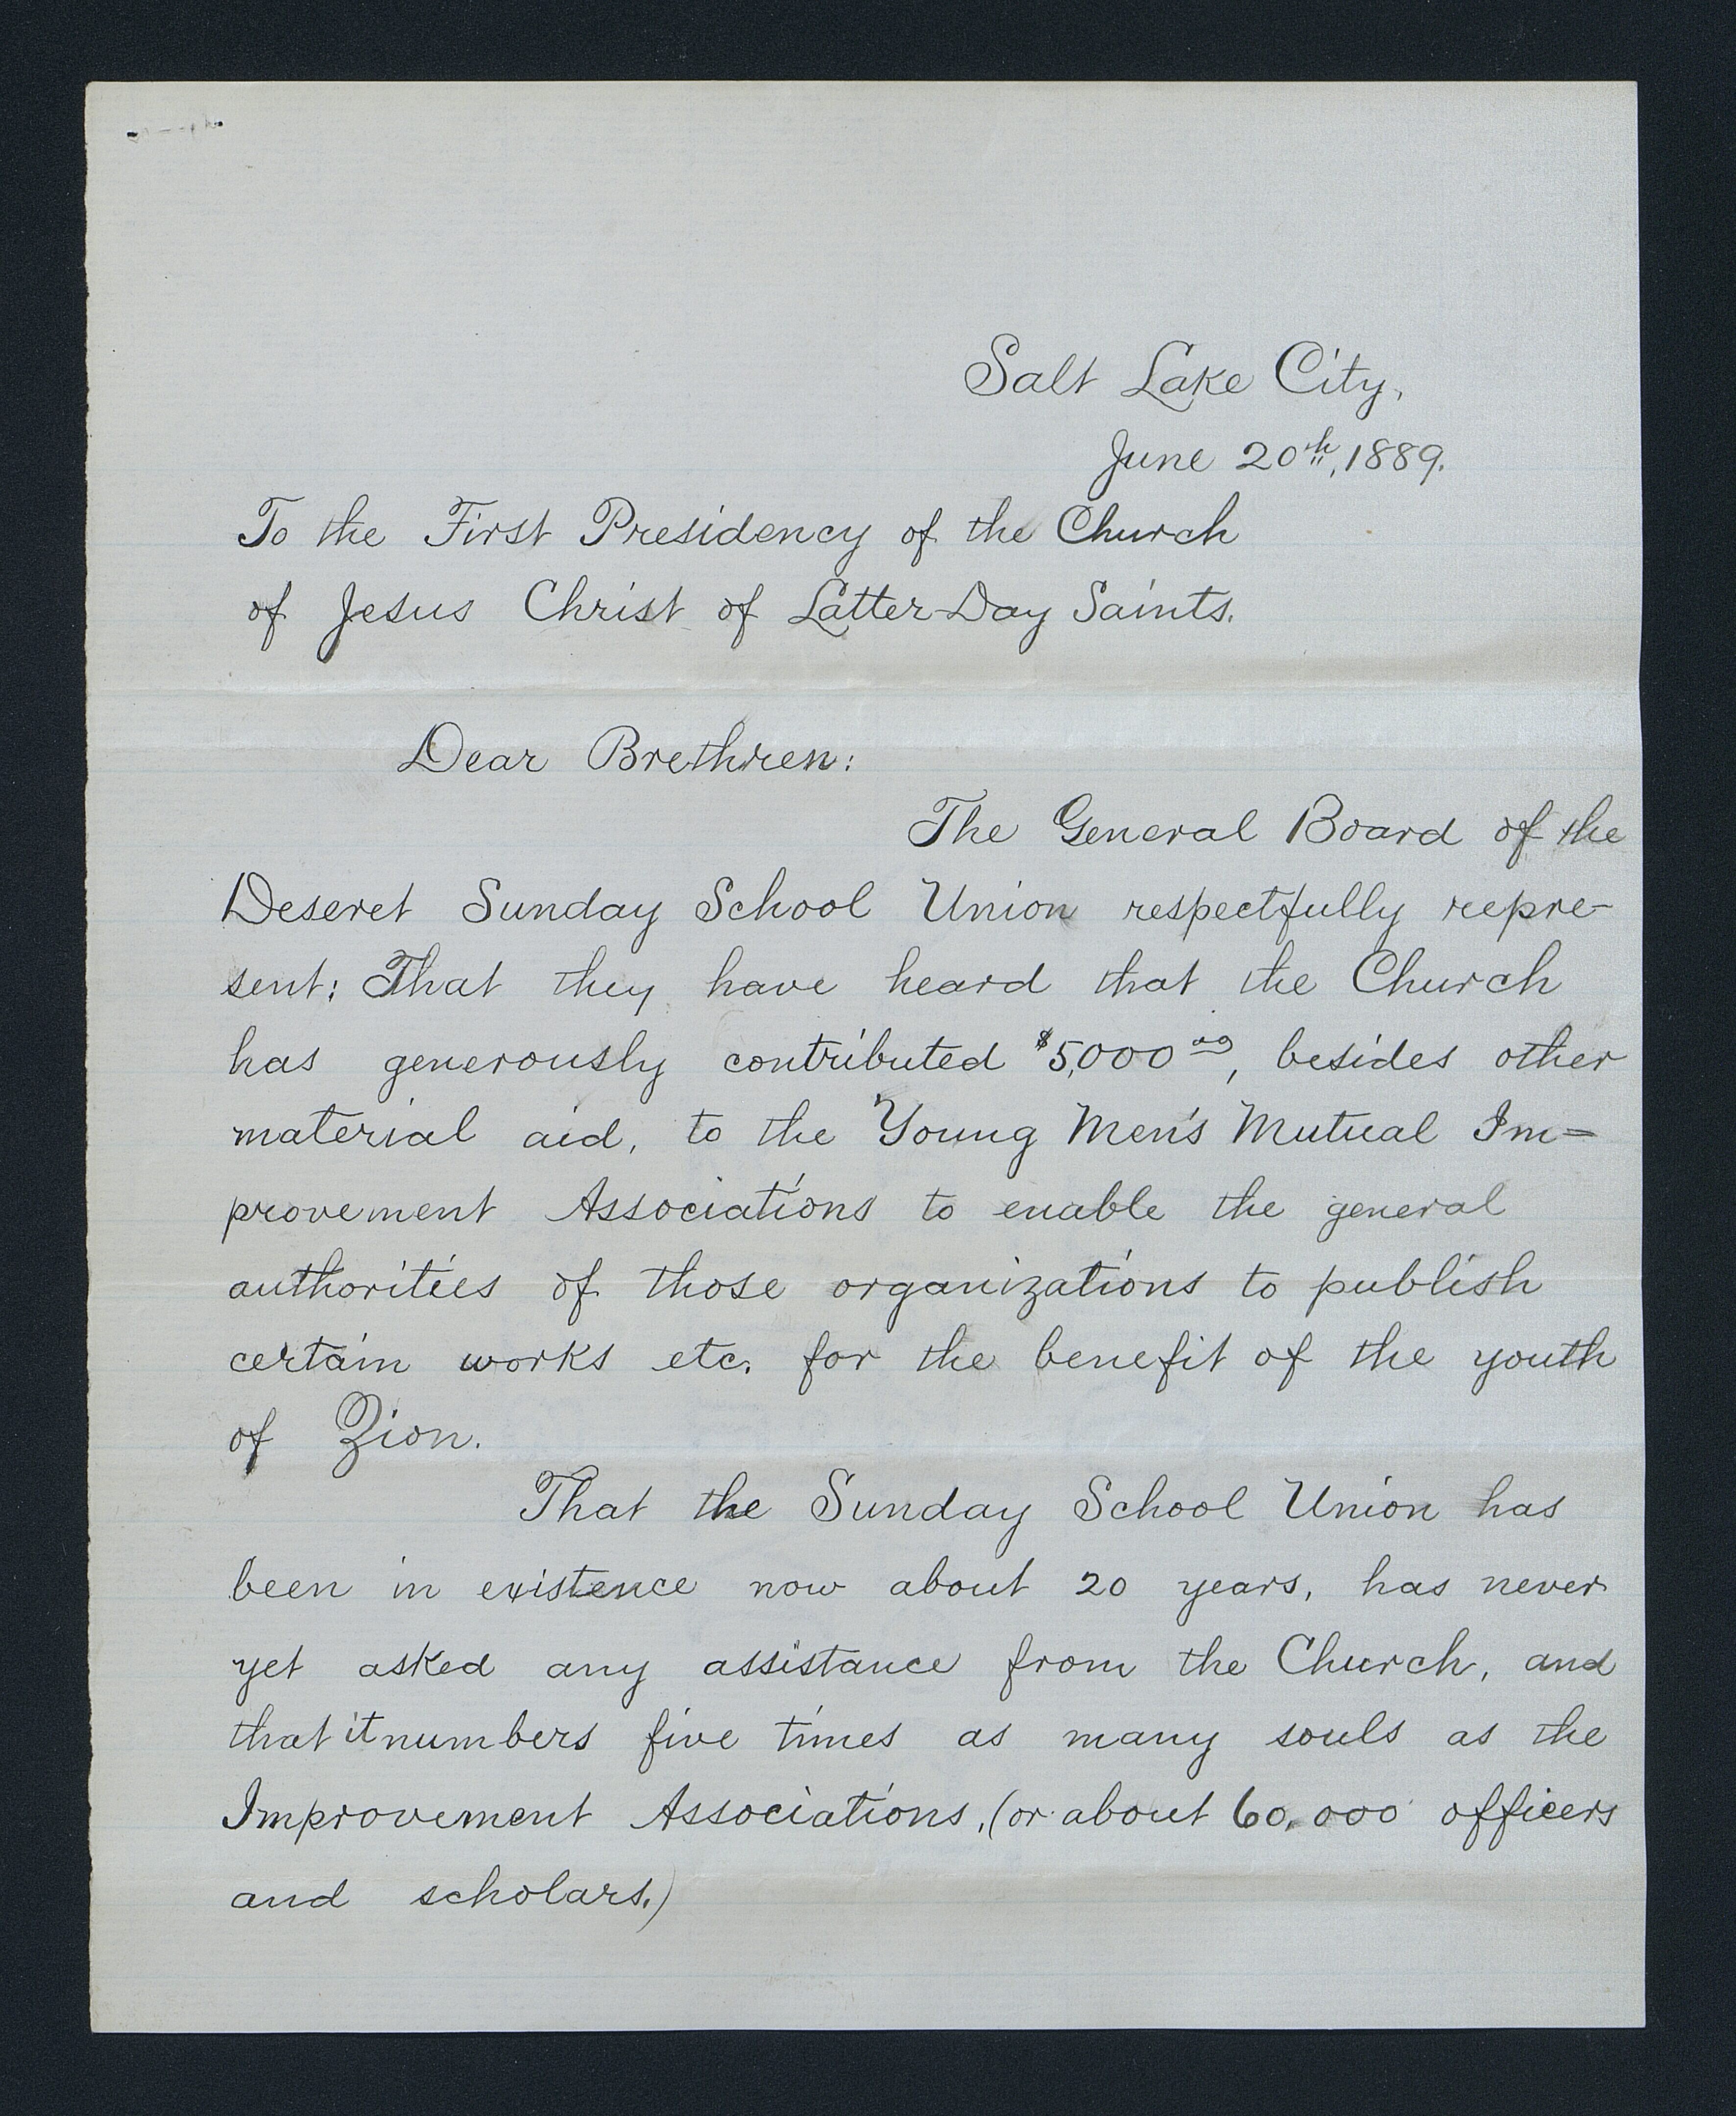 Salt Lake City,
June 20th, 1889.
To the First Presidency of the Church
of Jesus Christ of Latter-Day Saints.
Dear Brethren:
The General Board of the
Deseret Sunday School Union respectfully repre-
sent: That they have heard that the Church
has generously contributed $5,000 00, besides other
material aid, to the Young Men's Mutual Im=
provement Associations to enable the general
authorities of those organizations to publish
certain works etc. for the benefit of the youth
of Zion.
That the Sunday School Union has
been in existence now about 20 years, has never
yet asked any assistance from the Church, and
that it numbers five times as many souls as the
Improvement Associations, (or about 60,000 officers
and scholars.)